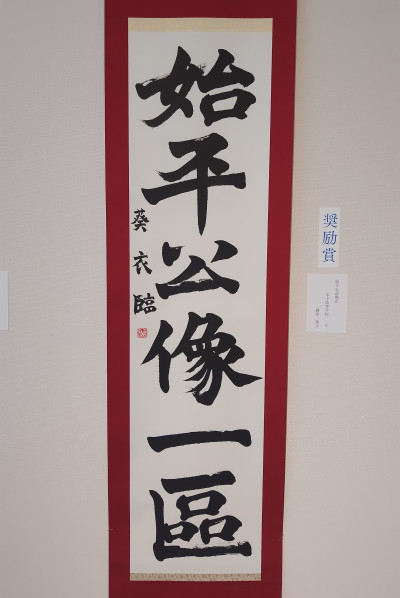 始平公像一區
葵衣臨
奨励賞